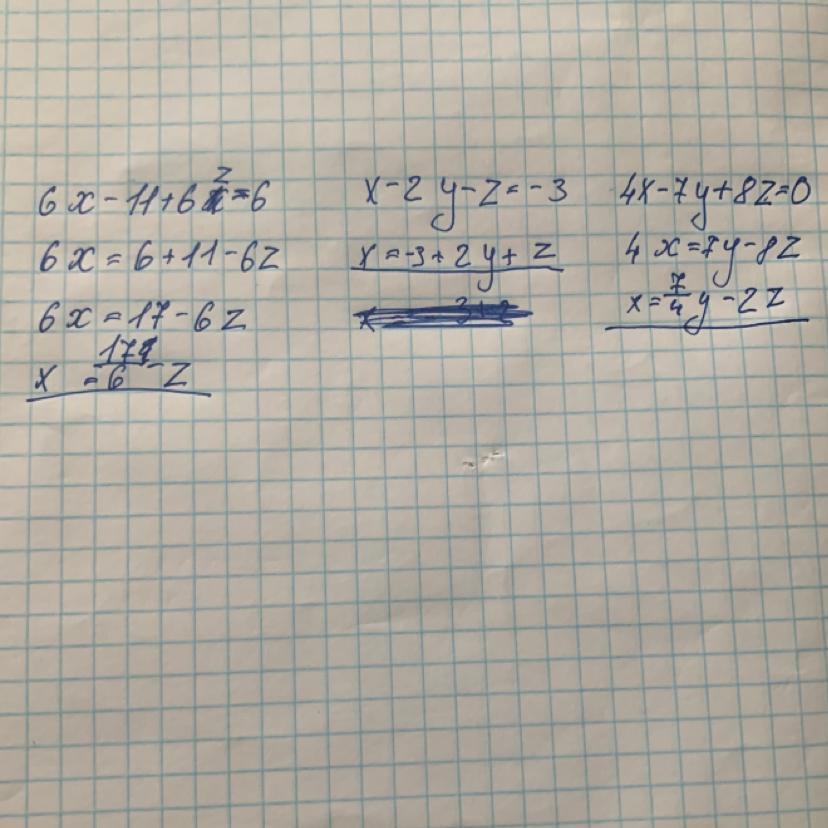 6x-11+6z=6
6x=6+11-6z
6x=17-6z
x=17/6-z
x-2y-z=-3
x=-3+2y+z
4x-7y+8z=0
4x=7y-8z
x=7/4y-2z